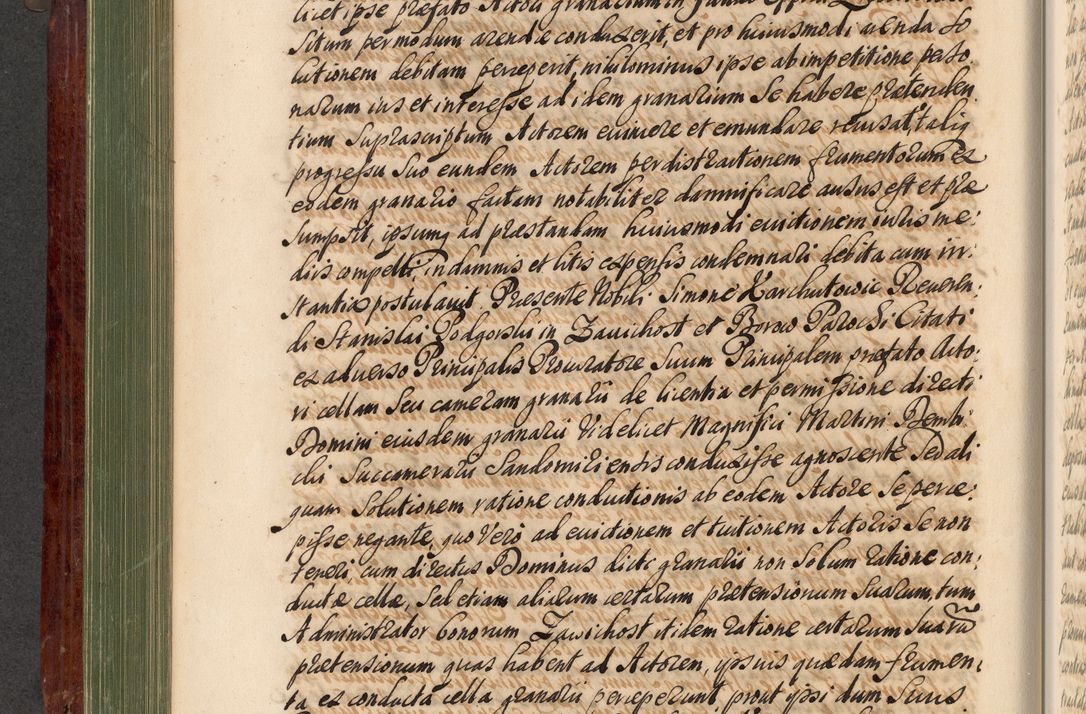 licet ipse præfato Actori granarium in
situm per modum arendæ conduxerit, et pro huiusmodi arenda so
lutionem debitam perceperit, nihilominus ipse ab impetitione perso
narum ius et interesse ad idem granarium se habere prætenden
tium suprascriptum Actorem evincere et emundare recusat, taliq
progressu suo eundem Actorem per distractionem frumentorum ex
eodem granario factam notabiliter damnificare ausus est et præ
sumpsit, ipsumq ad præstandam huiusmodi evictionem iuris me:
diis compelli, in damnis et litis expensis condemnari debita cum in:
stantia postulavit. Præsente Nobili Simone Karchutowic Reveren:
di Stanislai Podgorski in Zawichost et Borow Parochi Citati
ex adverso Principalis Procuratore suum Principalem præfato Acto:
ri cellam seu cameram granarii de licentia et permissione directi
Domini eiusdem granarii Videlicet Magnifici Martini Dembi:
cki Succamerarii Sandomiriensis conduxisse agnoscente sed ali
quam solutionem ratione conductionis ab eodem Actore se perce:
pisse negante, quo Vero ad evictionem et tuitionem Actoris se non
teneri, cum directus Dominus dicti granarii non solum ratione con:
ductæ cellæ, sed etiam aliarum certarum prætensionum suarum, tum
Administrator bonorum Zawichost itidem ratione certarum suarũ
prætensionum quas habent ad Actorem, ipsius quædam frumen:
ta ex conducta cella granarii perceperunt prout ipsi dum suus